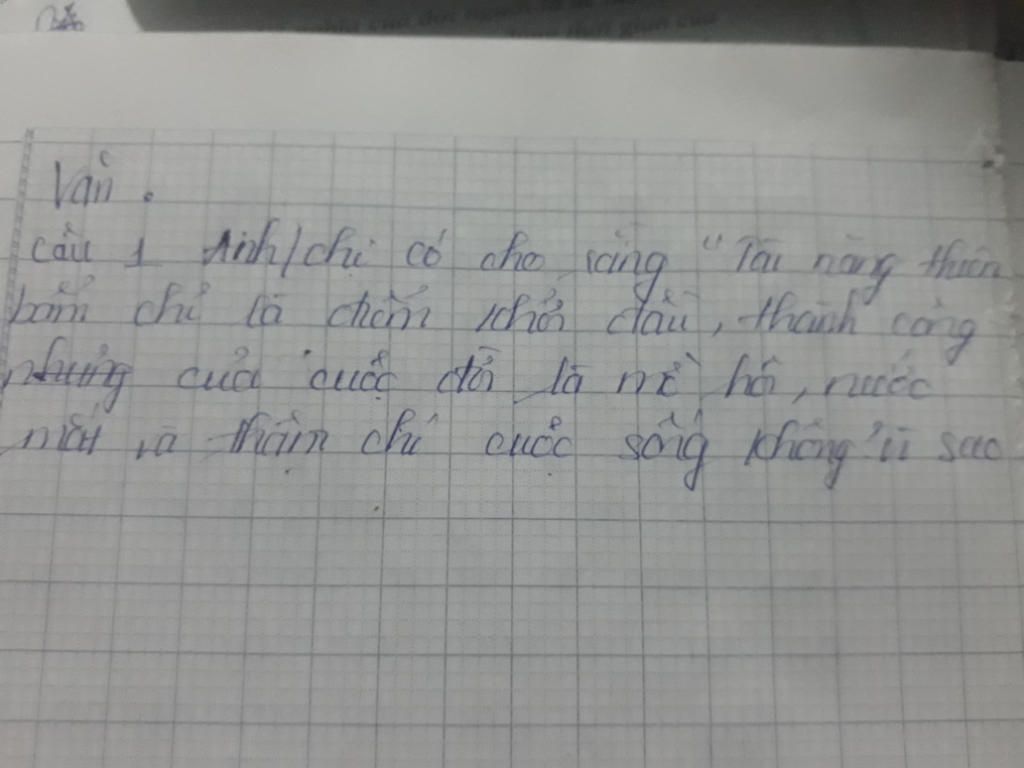 Văn.
Câu 1 Anh/chị có cho rằng "Tài năng thiên
bẩm chỉ là điểm khởi đầu, thành công
nhưng của cuộc đời là mồ hôi, nước
mắt và thậm chí cuộc sống không" vì sao